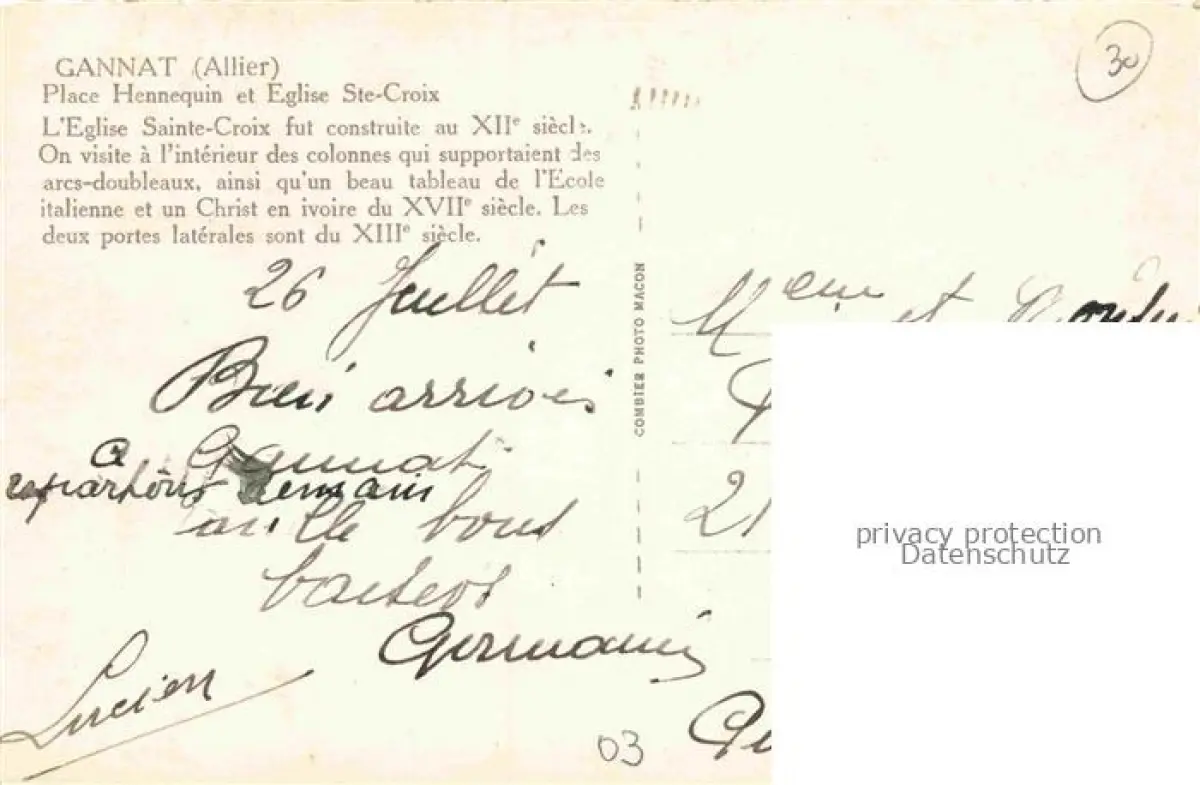 GANNAT (Allier)
Place Hennequin et Eglise Ste-Croix
L'Eglise Sainte-Croix fut construite au XIIe siècle.
On visite à l'intérieur des colonnes qui supportaient des
arcs-doubleaux, ainsi qu'un beau tableau de l'Ecole
italienne et un Christ en ivoire du XVIIe siècle. Les
deux portes latérales sont du XIIIe siècle.
30
26 Juillet
Bien arrivés
a Gannat
repartons demain
bons
baisers
Germaine
Lucien
COMBIER PHOTO MACON
et
21
03
privacy protection
Datenschutz